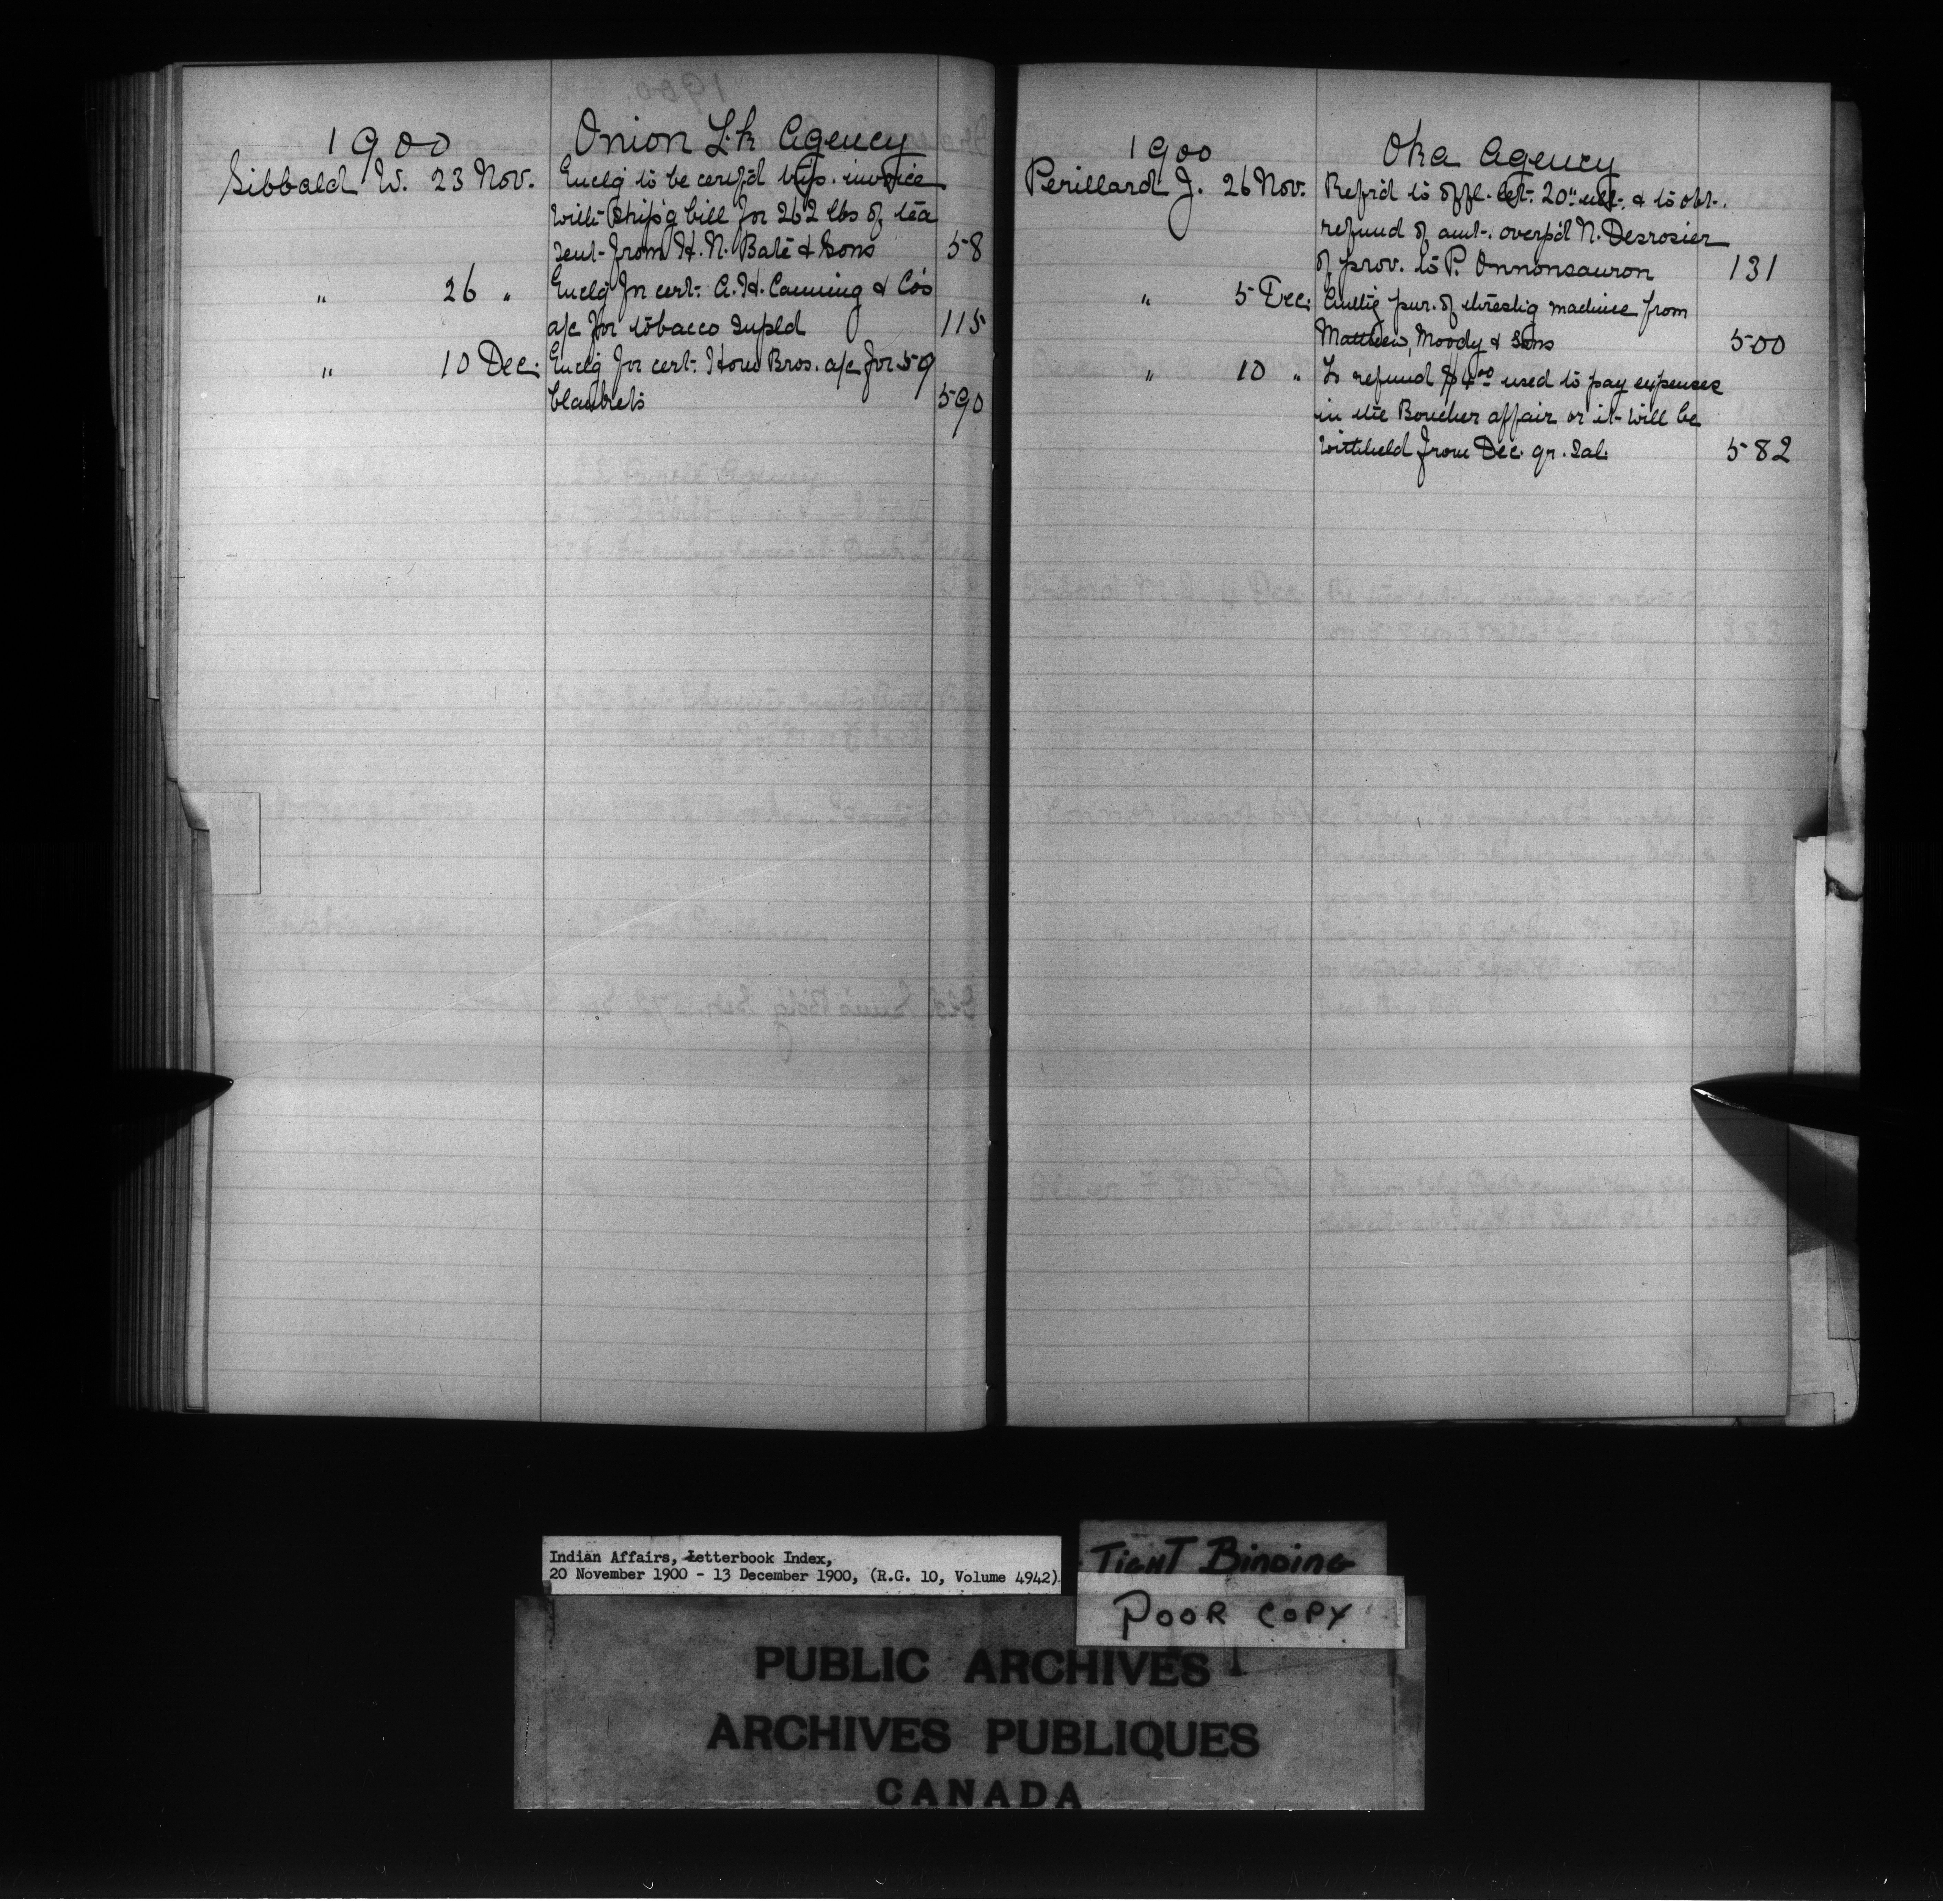 1900 Onion Lk Agency
Sibbald W. 23 Nov. Enclg to be certf'd trip. invoice
with ship'g bill for 262 lbs of tea
sent from H. N. Bate & Sons 58
" 26 " Enclg for cert. A. H. Canning & Co's
a/c for tobacco supld 115
" 10 Dec. Enclg for cert. How Bros. a/c for 59
blankets 590
1900 Oka Agency
Perillard J. 26 Nov. Ref'd to offl. let. 20" ult. & to obt.
refund of amt. overp'd N. Desrosier
of prov. to P. Onnonsauron 131
" 5 Dec. pur. of threshg machine from
Matthew, Moody & Sons 500
" 10 " To refund $4.00 used to pay expenses
in the Boucher affair or it will be
withheld from Dec. qr. sal. 582
Indian Affairs, Letterbook Index,
20 November 1900 - 13 December 1900, (R.G. 10, Volume 4942)
TIGHT BINDING
POOR COPY
PUBLIC ARCHIVES
ARCHIVES PUBLIQUES
CANADA